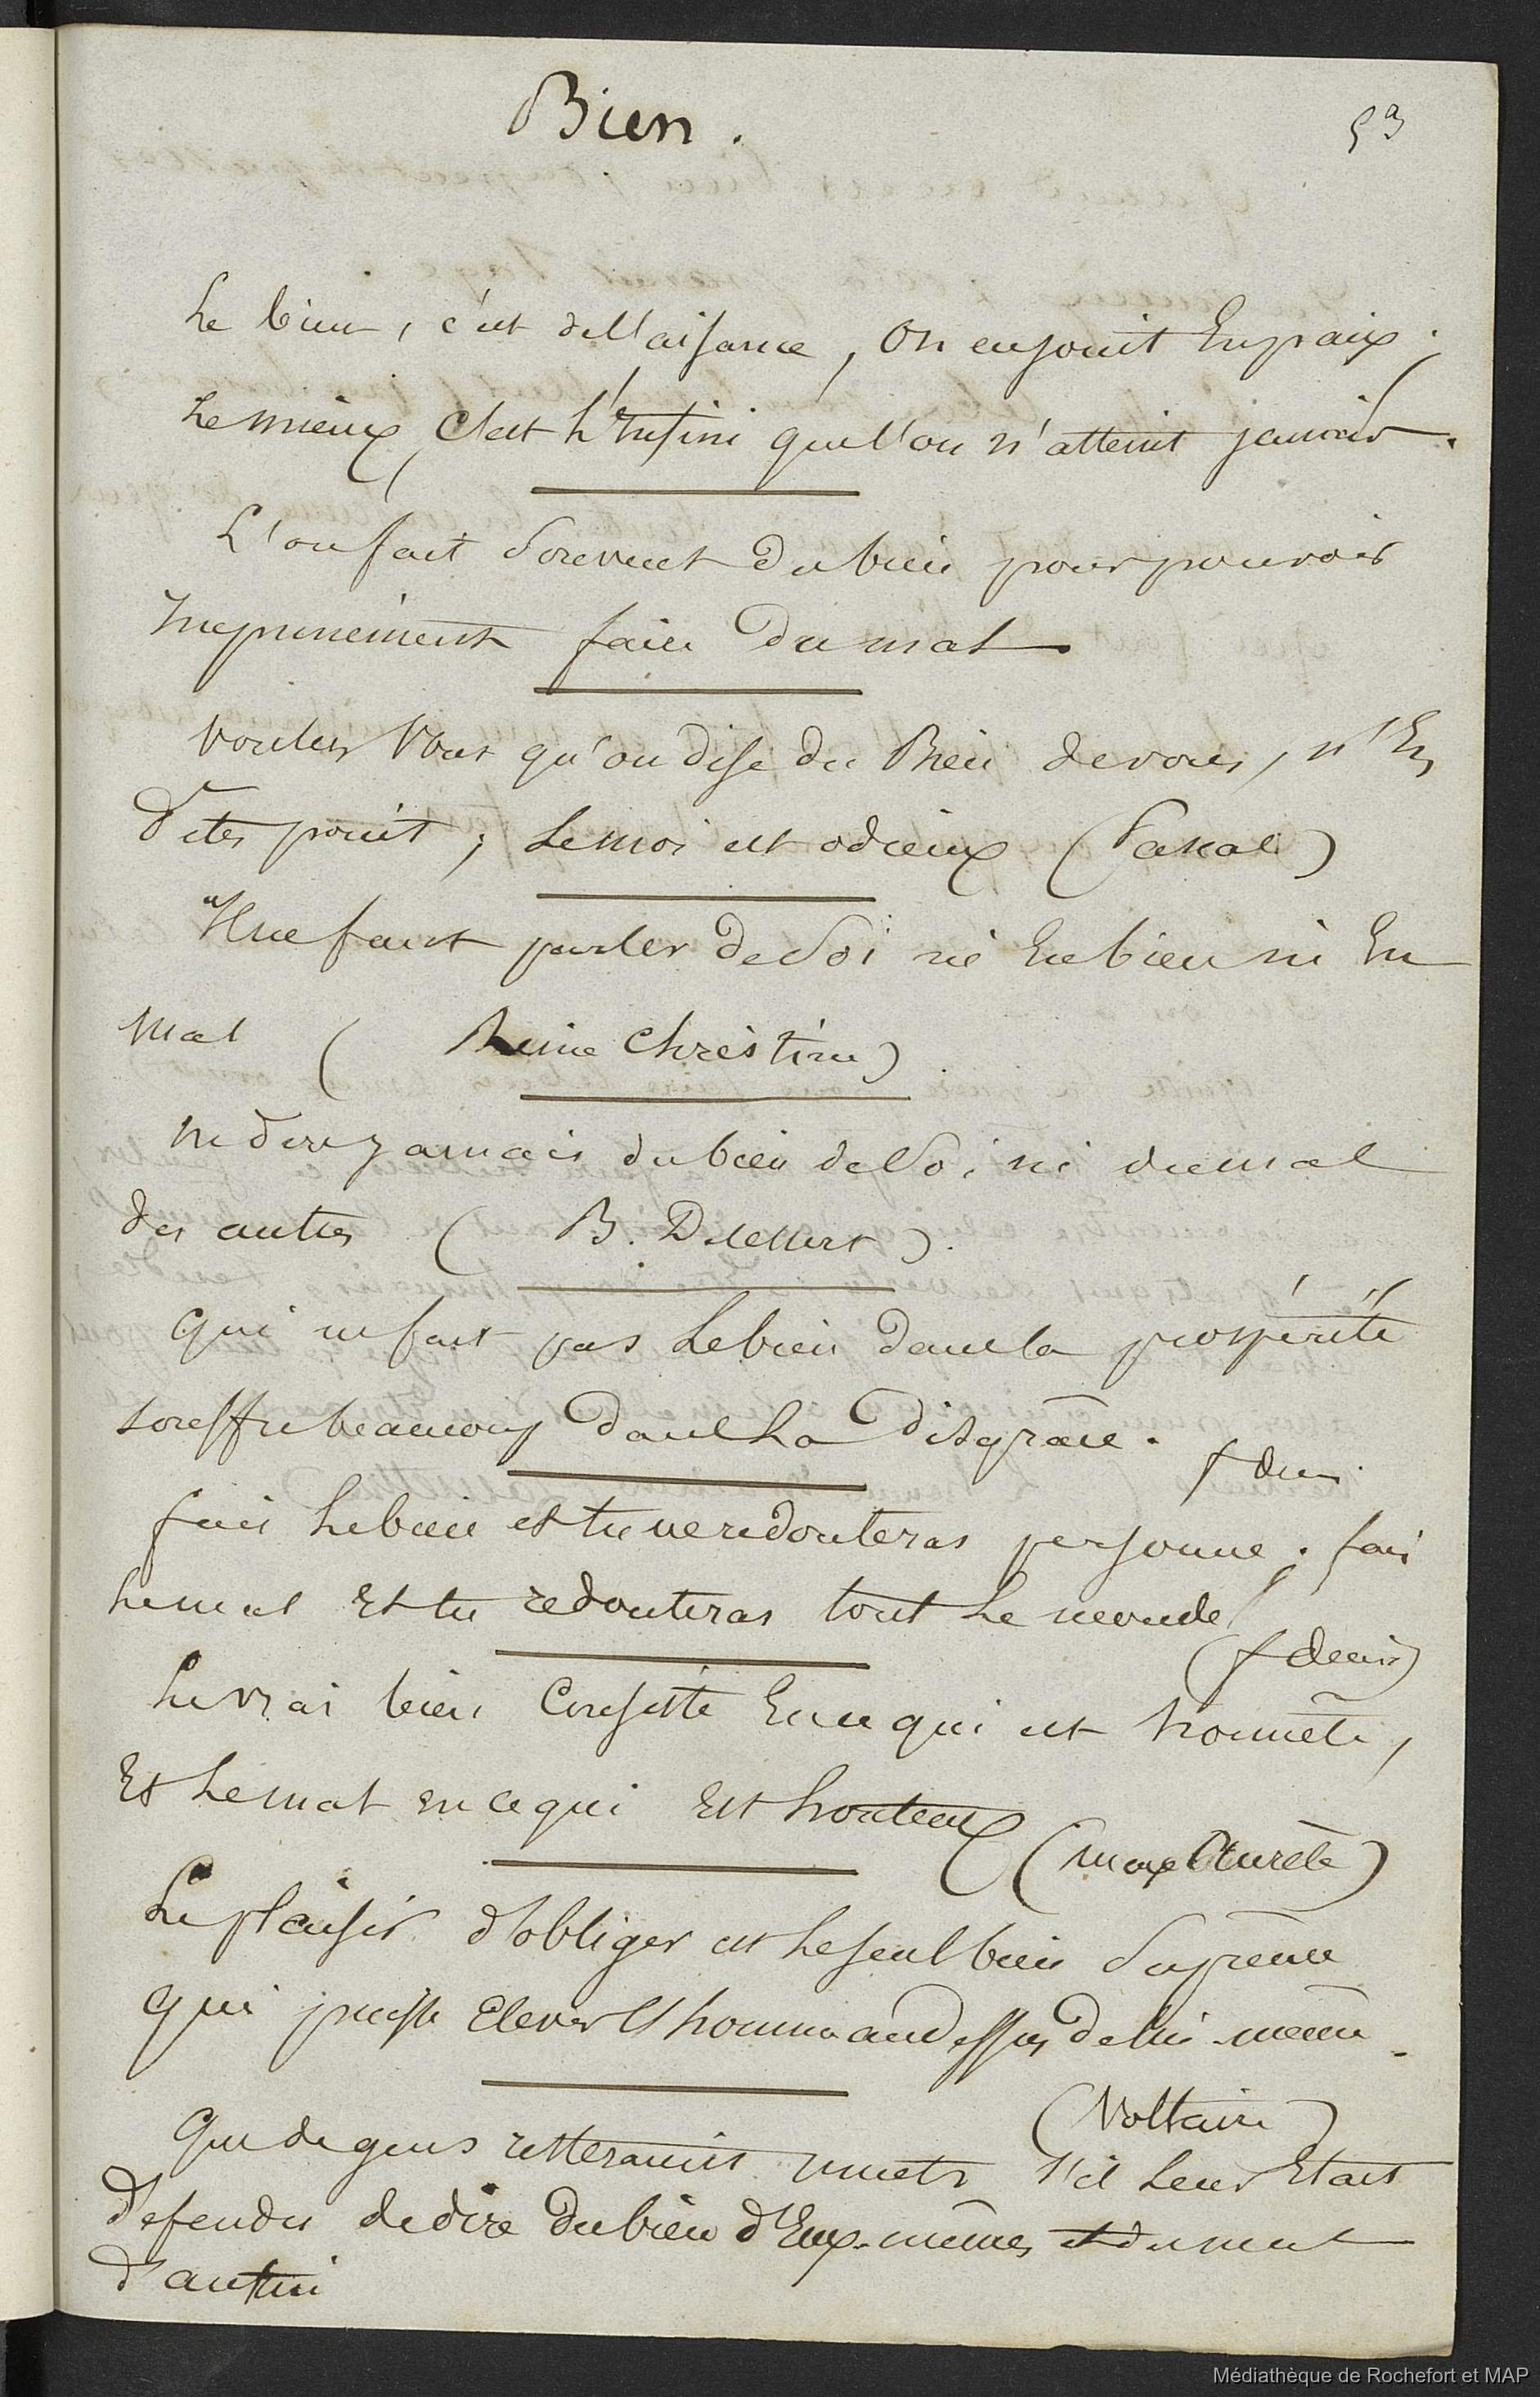 Bien.
53
Le bien, c'est de l'aisance, on en jouit En paix.
Le mieux c'est L'Infini que l'on n'atteint jamais.
L'on fait Souvent Du bien pour pouvoir
Impunément faire Du mal.
Voulez Vous qu'on dise du Bien de vous, n'En
Dites point; Le moi est odieux (Pascal)
Il ne faut parler De Soi ni En bien ni En
Mal ( Reine Christine)
Ne dire jamais du bien de Soi ni du mal
des autres ( B. Delessert ).
Qui ne fait pas Le bien dans la prospérité
souffre beaucoup Dans La Disgrâce.
f denis
fais Le bien et tu ne redouteras personne. fais
Le mal Et tu redouteras tout Le monde
(f denis)
Le vrai bien Consiste En ce qui est honnête,
Et Le mal en ce qui Est honteux
(Marc Aurèle)
Le plaisir d'obliger est Le seul bien Suprême
Qui puisse Elever L'homme audessus De lui-même.
(Voltaire)
Que de gens resteraient muets s'il Leur Etait
Defendu de dire Du bien d'Eux-mêmes et du mal
D'autrui
Médiathèque de Rochefort et MAP